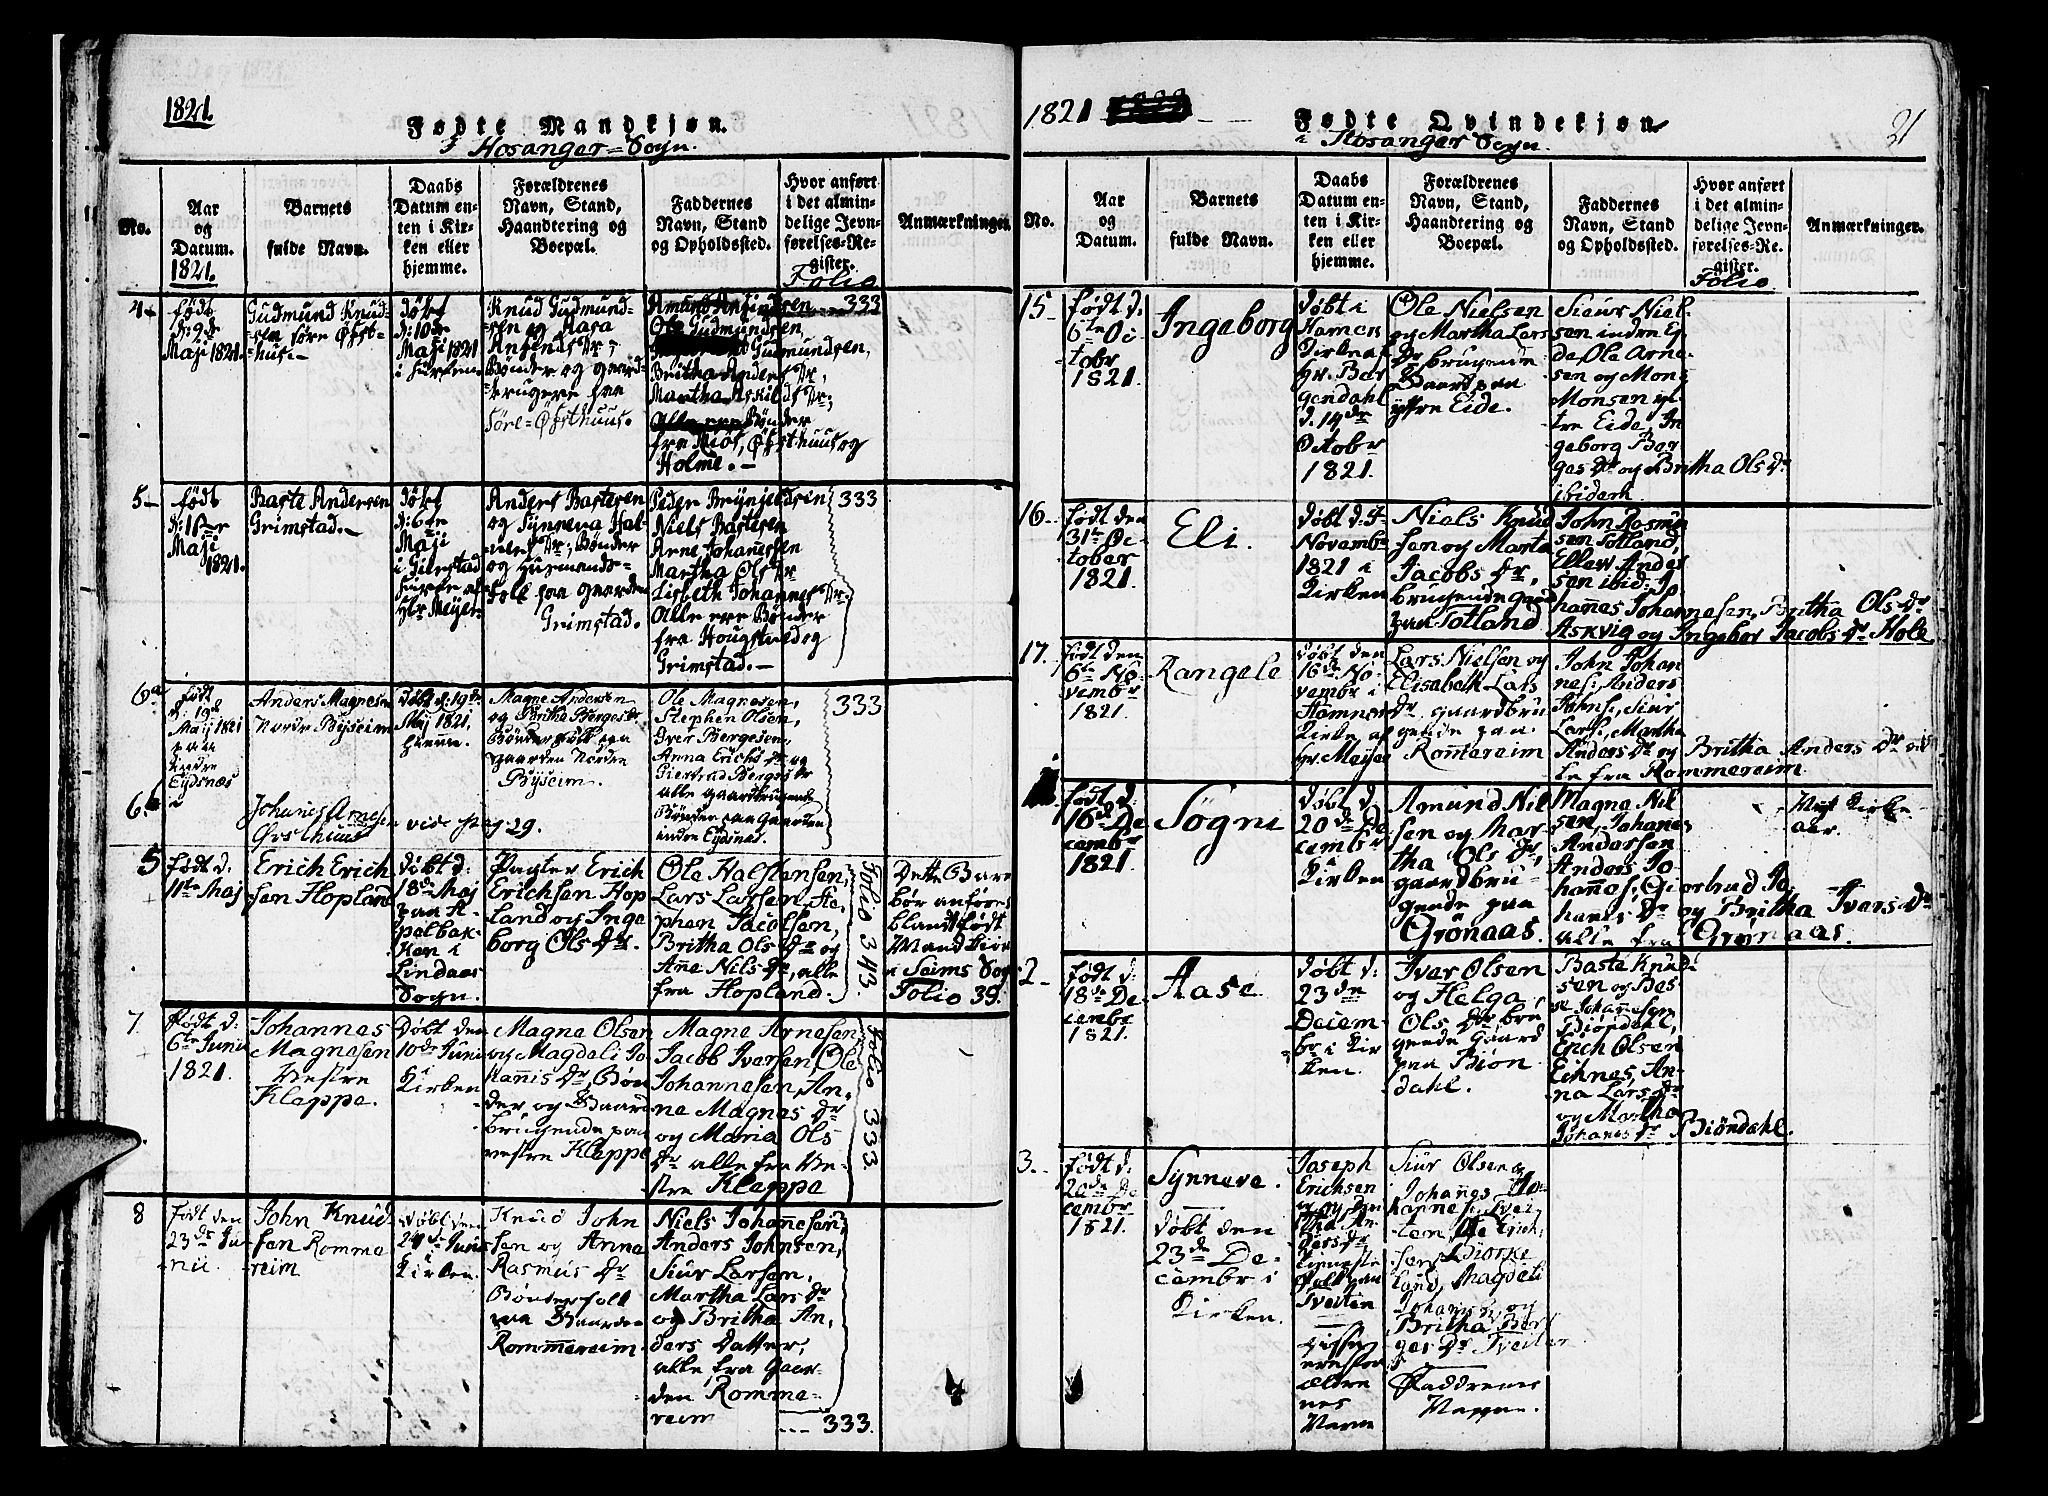 1821.
Fødte Mandkjøn.
i Hosanger=Sogn.
No.
Aar
og
Datum.
1821.
Barnets
fulde Navn.
Daabs
Datum en-
ten i Kir-
ken eller
hjemme.
Forældrenes
Navn, Stand,
Haandtering og
Boepæl.
Faddernes
Navn, Stand
og Opholdssted.
Hvor anført
i det almin-
delige Jevn-
førelses-Re-
gister.
Folio
Anmærkninger.
4
født
d: 9de
Maji 1821.
Gudmund Knud-
sen søre Øfst-
huus.
døbt
d: 10de
Maji 1821
i Kirken.
Knud Gudmund-
sen og Kara
Amundsdr;
Bønder og gaard-
brugere paa
Søre=Øfsthuus.
Ole Gudmundsen,
Gudmundsen,
Britha Andersdr,
Martha Askildsdr;
Alle ere Bønder
fra Øfsthuus og
Holme.
333
5
født
Maji
1821.
Baste Andersen
Grimstad.
døbt
d: 6te
Maji
i Grimstad
Kirke af
Hr. Meyer
Anders Bastesen
og Synneva Hal-
Bønder
og Husmands-
Folk paa gaarden
Grimstad.
Peder Brynjeldsen
Niels Bastesen
Arne Johannessen
Martha Olsdr
Lisbeth Johannesdr.
Alle ere Bønder
fra Hougstad og
Grimstad.
333
6a
født
d. 19de
Maij 1821
paa
indre
Eydsnæs
Anders Magnesen
Nordre Byseim
Døbt d. 19de
Maj 1821,
hiemme.
Magne Andersen
og Britha Bergesdr
Bønderfolk paa
gaarden Nordre
Byseim.
Ole Magnesen,
Stephen Olsen,
Iver Bergesen,
Anna Erichsdr og
Giertrud Bergesdr
alle gaardbrugende
Bønder paa Gaarden
indre Eydsnæs.
333
6b
Johanes Arnesen
Øvsthuus
vide pag 29.
5
født d:
11te Maj
Erich Erich
sen Hopland
Døbt d:
18de Maj
paa
i
Lindaas
Sogn.
Pagter Erich
Erichsen Hop
land og Inge
borg Olsdr.
Ole Halstensen,
Lars Larsen, Ste
phen Jacobsen,
Britha Olsdr og
Ane Nilsdr, alle
fra Hopland.
Folio 343.
Dette Barn
bør anføres
blandt født
Mandkiøn
i Seims Sogn
Folio 39.
7.
født d:
6te Junii
1821.
Johannes
Magnesen
Vestre
Kleppe.
Døbt den
10de Junii
i
Kirken
Magne Olsen
og Magdeli Jo
hannisdr, Bøn
der og Gaard
brugende paa
vestre Kleppe
Magne Arnesen,
Jacob Iversen, Ole
Johannesen, An-
ne Magnesdr
og Maria Ols
dr alle fra Ve-
stre Kleppe
Folio 333.
8
født den
23de Ju-
nii.
John Knud
sen Romme
reim
Døbt den
24de Junii
i
Kirken.
Knud John
sen og Anna
Rasmusdr
Bønderfolk
paa Gaarden
Rommereim.
Niels Johannesen,
Anders Johnsen,
Siur Larsen,
Martha Larsdr
og Britha An-
ders Datter,
alle fra Gaar-
den Romme-
reim
333.
1821
Fødte Qvindekjøn
i Hosanger Sogn.
21
No.
Aar
og
Datum.
Barnets
fulde Navn.
Daabs
Datum en-
ten i Kir-
ken eller
hjemme.
Forældrenes
Navn, Stand,
Haandtering og
Boepæl.
Faddernes
Navn, Stand
og Opholdssted.
Hvor anført
i det almin-
delige Jevn-
førelses-Re-
gister.
Folio
Anmærkninger.
15
født d:
6te Oc
tobr
1821.
Ingeborg
Døbt i
Hamers
Kirke af
hr. Ber
gendahl
d. 14de
Octobr
1821.
Ole Nielsen
og Martha Lars
dr brugende
Gaard paa
yttre Eide.
Siur Niel-
sen indre Ey-
de, Ole Arne-
sen og Mons
Monsen yt-
tre Eide, In
geborg Ber
gesdr og Britha Olsdr
ibidem.
16
født den
31te Oc
tober
1821.
Eli.
Døbt d. 4
Novembr
1821 i
Kirken
Niels Knud
sen og Marta
Jacobsdr,
brugende gaard
paa Totland
John Rasmus
sen Totland,
Ellew Ander
sen ibid: Jo
hannes Johannesen, Britha Olsdr
Askvig og Ingebor Jacobsdr Hole
17.
født den
6te No
vembr
1821.
Rangele
Døbt den
16de No
vembr i
Hamners
Kirke af
hr. Meyer
Lars Nielsen og
Elisabeth Lars
dr gaardbru
gende paa
Rommereim
John Johan
nes: Anders
Johns, Siur
Lars:, Martha
Andersdr og Britha Andersdr al
le fra Rommereim.
født d:
16de De
cembr
1821.
Søgni
Døbt d.
20de De
cembr
i
Kirken
Amund Nil
sen og Mar
tha Olsdr,
gaardbru-
gende paa
Grønaas.
Magne Nil
sen, Johanes
Anderssen
Anders Jo-
hannes: Giertrud Jo
hanisdr og Britha Iversdr
alle fra Grønaas.
Kirke-
aar.
2
født d:
18de De
cembr
1821.
Aase.
Døbt d:
23de
Decem-
br i Kir
ken.
Iver Olsen
og Helga
Olsdr bru
gende Gaard
paa Biøn
dahl.
Baste Knud
sen og Bes
se Johannesen
Biøndahl,
Erich Olsen
Eitnes, An-
na Larsdr
og Martha
Johanesdr Biøndahl.
3.
født d:
20de De
cembr
1821.
Synneve.
Døbt den
23de De-
cembr i
Kirken.
Joseph
Erichsen
og
An-
dersdr
folk paa
Tveiten
Disse
ere For
ældre
nes
Navn
Siur Olsen og
Johannes Jo-
hannes: Tvei-
ten, Ole Erich-
sen Biørke
land, Magdeli
Johansdr og
Britha Ber
gesdr Tveiten
Faddrenes
Navne.